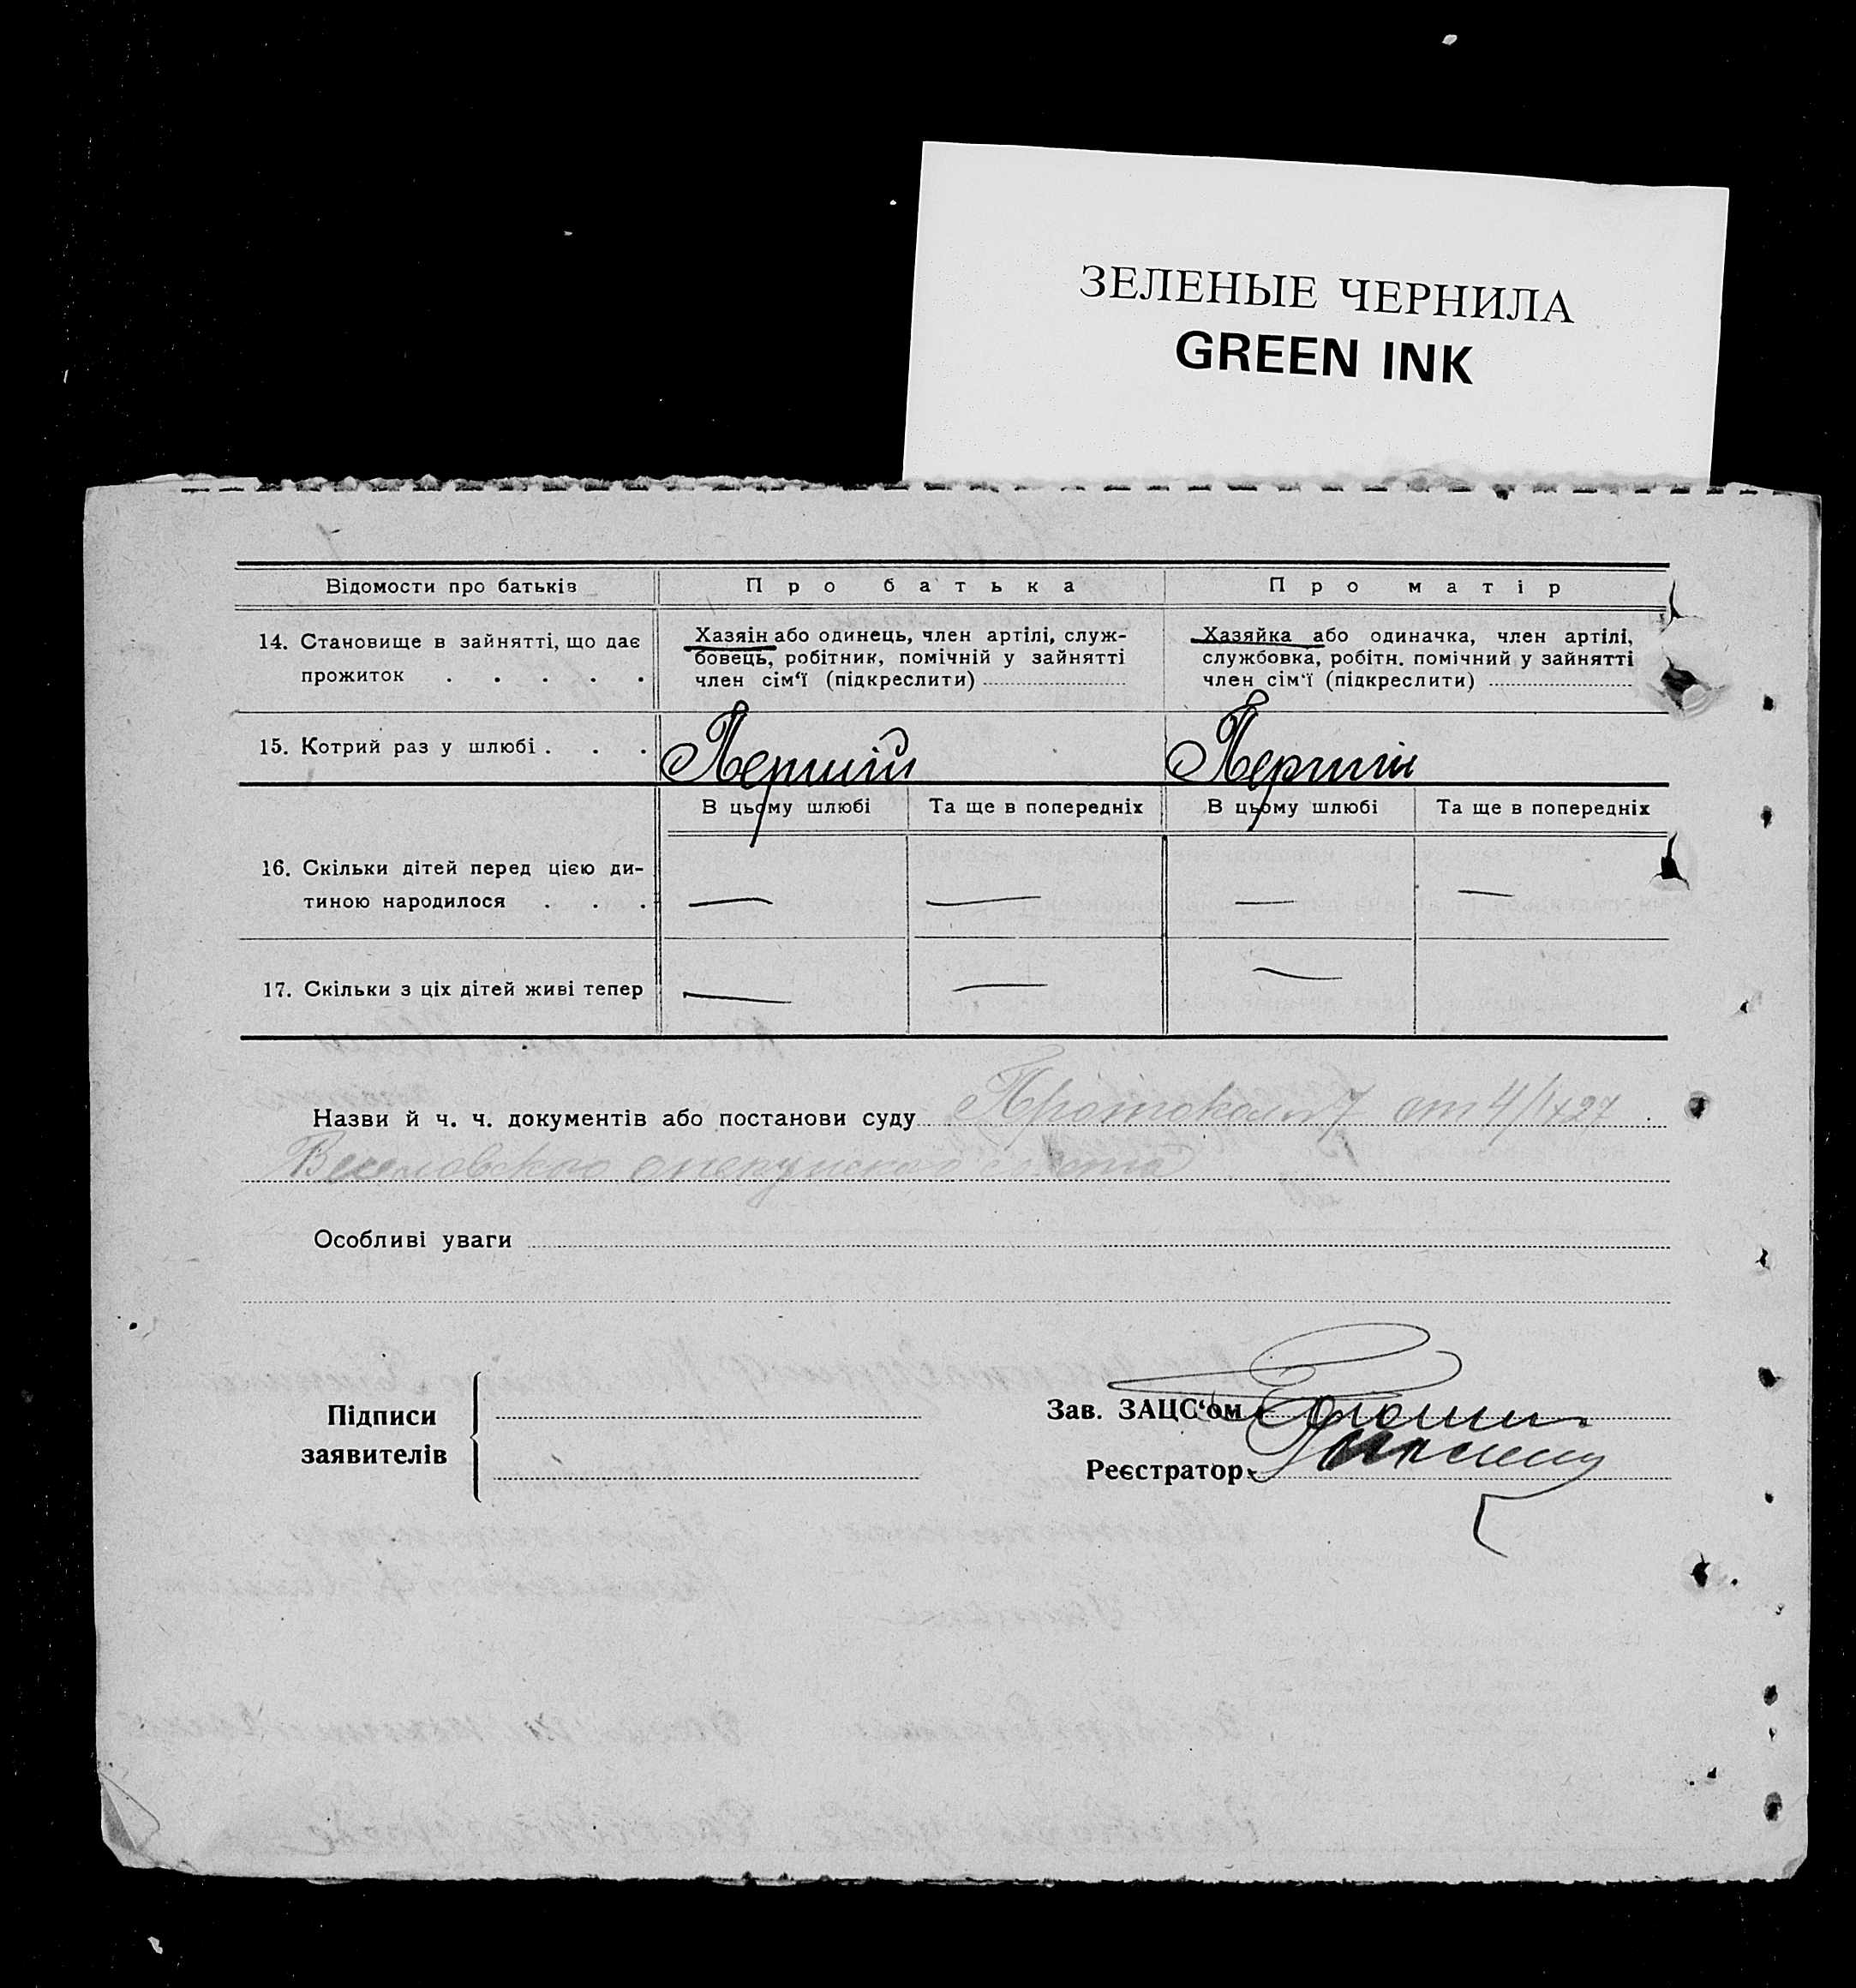 ЗЕЛЕНЫЕ ЧЕРНИЛА
GREEN INK
Відомости про батьків
Про батька
Про матір
14. Становище в зайнятті, що дає
прожиток . . . . .
Хазяін або одинець, член артілі, служ-
бовець, робітник, помічній у зайнятті
член сім‘ї (підкреслити)
Хазяйка або одиначка, член артілі,
службовка, робітн. помічний у зайнятті
член сім‘ї (підкреслити)
15. Котрий раз у шлюбі . . .
Перший
Перший
В цьому шлюбі
Та ще в попередніх
В цьому шлюбі
Та ще в попередніх
16. Скільки дітей перед цією ди-
тиною народилося . . .
— — — —
17. Скільки з ціх дітей живі тепер
— — —
Назви й ч. ч. документів або постанови суду Протокол 7 от 4/
Веселовского опекунского
Особливі уваги
Підписи
заявителів
Зав. ЗАЦС‘ом
Реєстратор